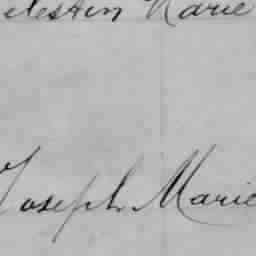 elestin Marie
Joseph Marie